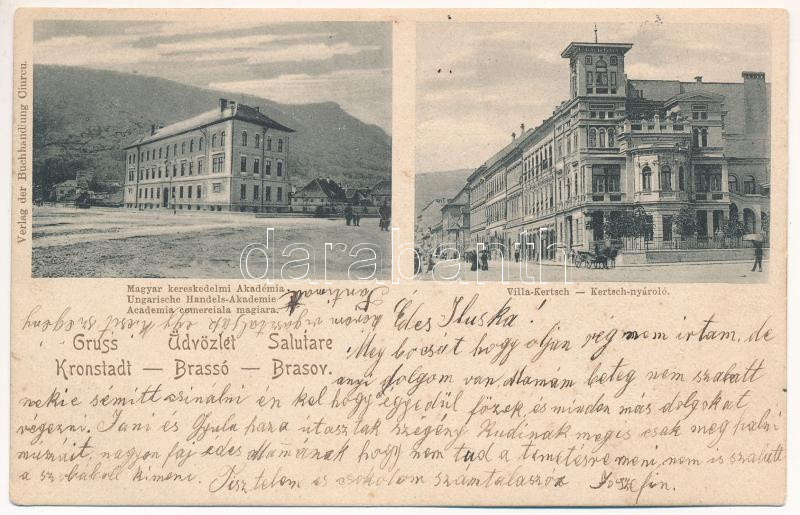 Verlag der Buchhandlung Ciurcu.
Magyar kereskedelmi Akadémia
Ungarische Handels-Akademie
Academia comerciala magiara.
Villa-Kertsch — Kertsch-nyároló.
darabanth
Gruss Üdvözlet Salutare
Kronstadt — Brassó — Brasov.
Édes Iluska!
Meg bocsát hogy oljan rég nem irtam, de
anyi dolgom van, Mamám beteg nem szabatt
nekie sémitt csinálni én kel hogy egyedül főzek, és minden más dolgokat
végezni. Jani és Gyula haza utaztak szegény Rudinak mégis csak meg
nagyon faj édes Mamának hogy nem tud a temetésre meni, nem is szabatt
a szobából kimeni. Tisztelem es csokolom számtalaszor Josefin.